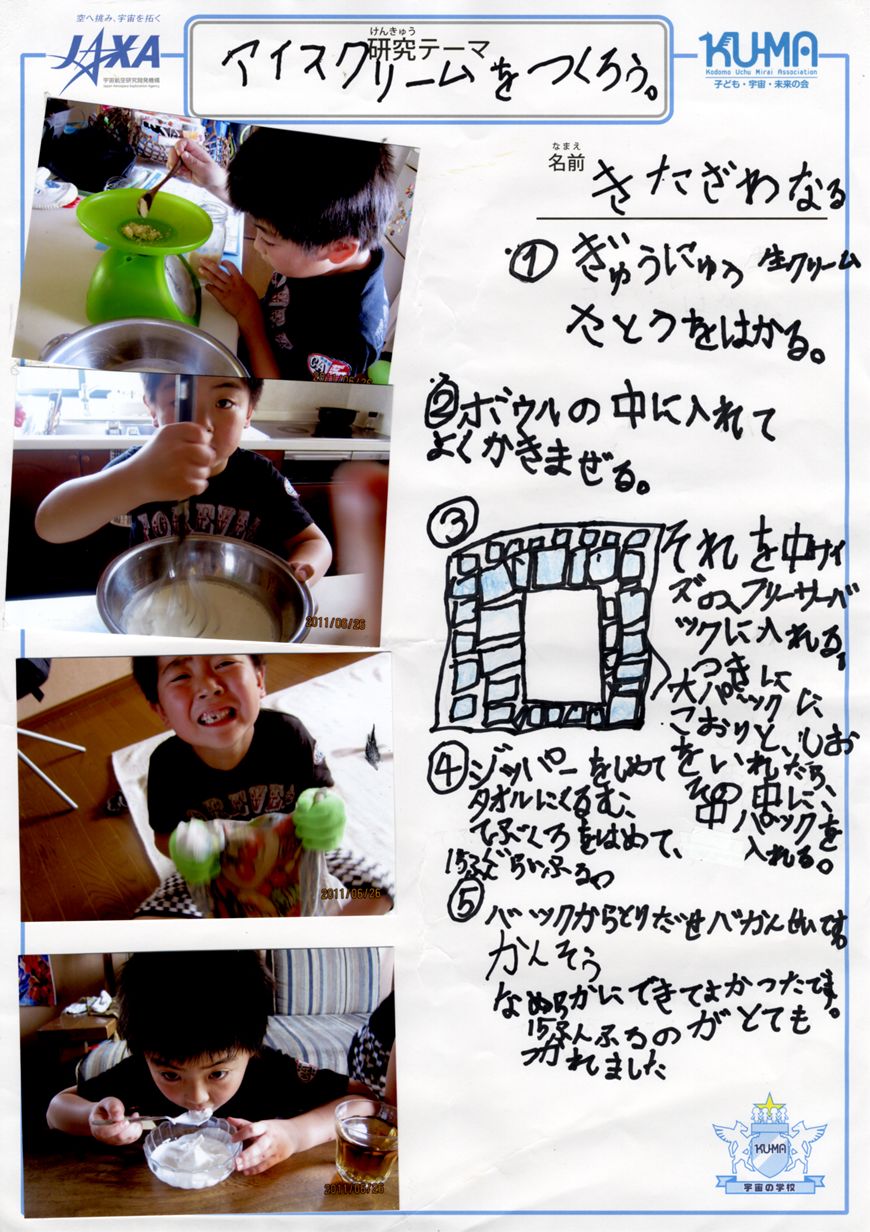 空へ挑み、宇宙を拓く
JAXA
宇宙航空研究開発機構
Japan Aerospace Exploration Agency
けんきゅう
研究テーマ
アイスクリームをつくろう。
KU-MA
Kodomo Uchu Mirai Association
子ども・宇宙・未来の会
なまえ
名前
きたざわなる
① ぎゅうにゅう 生クリーム
さとうをはかる。
②ボウルの中に入れて
よくかきまぜる。
③
それを中サイ
ズのフリーザーバ
ックに入れる。
つぎに
大パックに、
こおりと、しお
をいれたら、
その中に、
中パックを
入れる。
④ジッパーをしめて
タオルにくるむ、
てぶくろをはめて、
15ふんぐらいふる。
⑤
バックからとりだせばかんせいです。
かんそう
なめらかにできてよかったです。
15ふんふるのがとても
つかれました
2011/06/26
2011/06/26
2011/06/26
2011/06/26
KU-MA
宇宙の学校